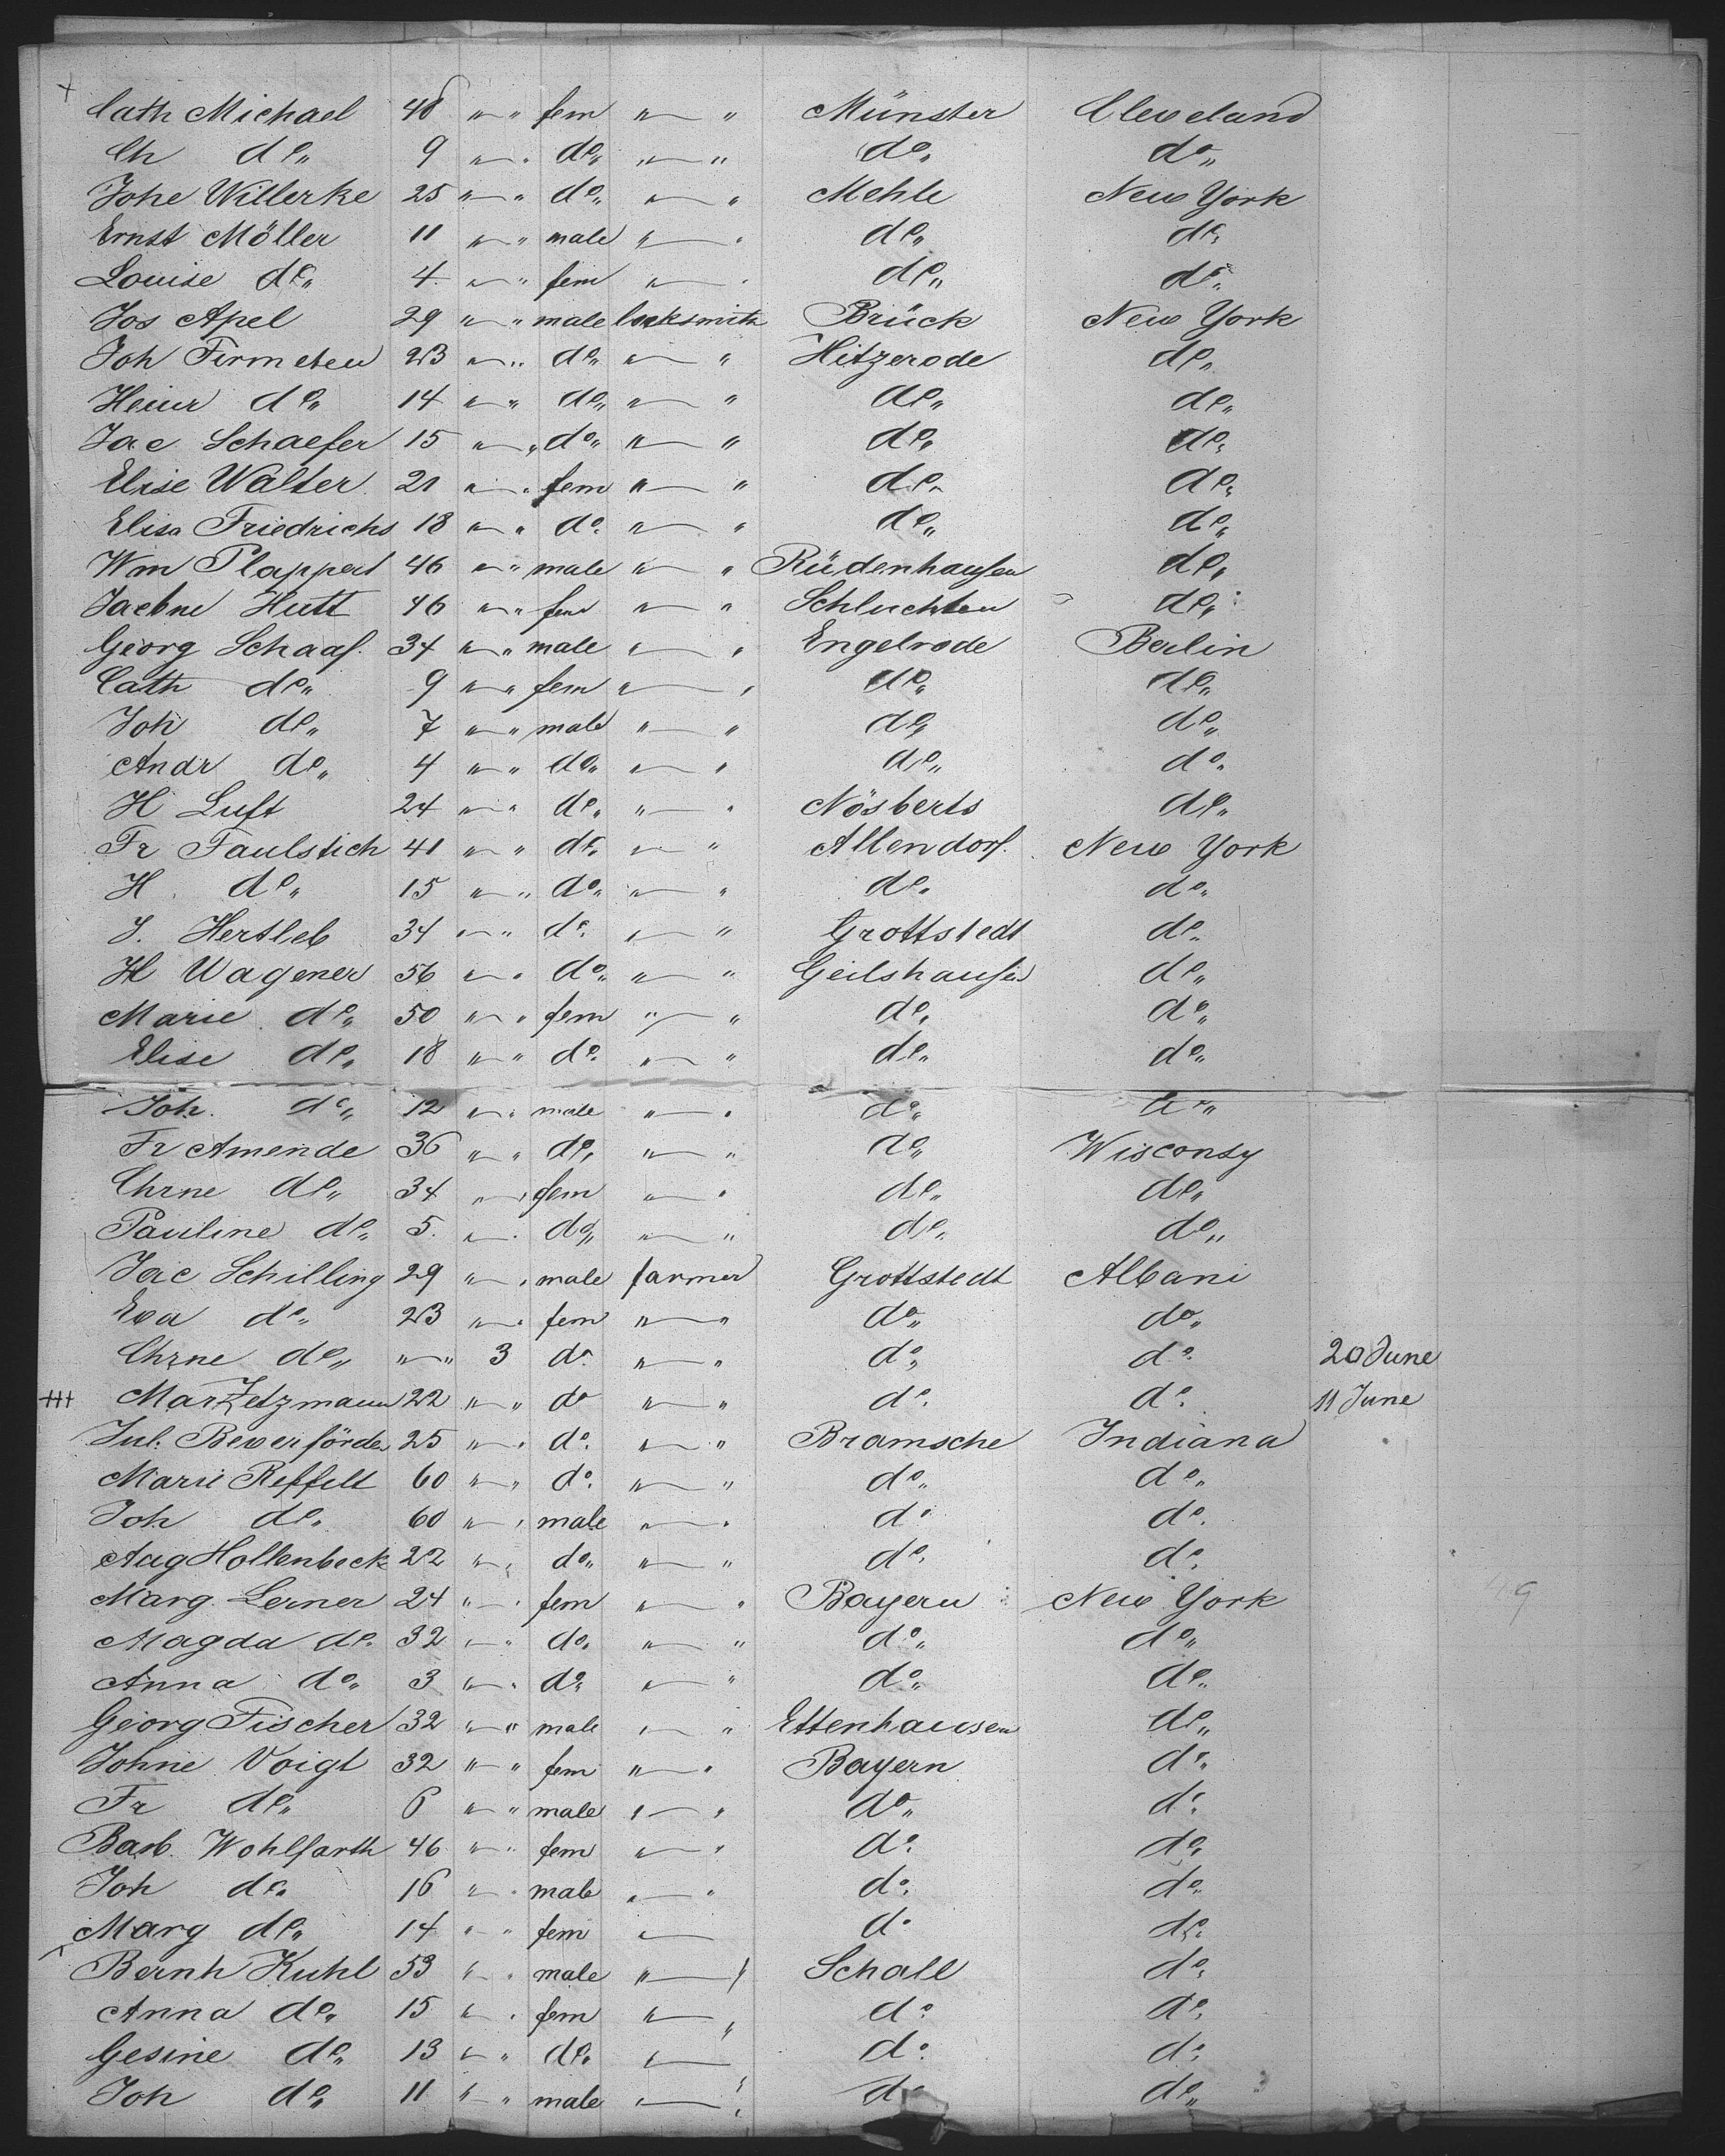 Cath Michael 48 " " fem " " Münster Cleveland
Ch do 9 " " do " " do do
Johe Willerke 25 " " do " " Mehle New York
Ernst Möller 11 " " male " " do do
Louise do 4 " " fem " " do do
Jos Apel 29 " " male locksmith Brück New York
Joh Firmeten 23 " " do " " Hitzerode do
Heinr do 14 " " do " " do do
Jac Schaefer 15 " " do " " do do
Elise Walter 21 " " fem " " do do
Elisa Friedrichs 18 " " do " " do do
Wm Plappert 46 " " male " " Rüdenhausen do
Jacbne Hutt 46 " " fem " " Schluchten do
Georg Schaaf 34 " " male " " Engelrode Berlin
Cath do 9 " " fem " " do do
Joh do 7 " " male " " do do
Andr do 4 " " do " " do do
H Luft 24 " " do " " Nösberts do
Fr Faulstich 41 " " do " " Allendorf New York
H. do 15 " " do " " do do
J. Hertleb 34 " " do " " Grottstedt do
H Wagener 56 " " do " " Geilshausen do
Marie do 50 " " fem " " do do
Elise do 18 " " do " " do do
Joh. do 12 " " male " " do do
Fr Amende 36 " " do " " do Wisconsy
Chrne do 34 " " fem " " do do
Pauline do 5 " " do " " do do
Jac Schilling 29 " " male farmer Grottstedt Albani
Eva do 23 " " fem " " do do
Chrne do " " 3 do " " do do 20 June
Mar Jetzmann 22 " " do " " do do 11 June
Jul. Beverförde 25 " " do " " Bramsche Indiana
Marie Reffelt 60 " " do " " do do
Joh do 60 " " male " " do do
Aug Hollenbeck 22 " " do " " do do
Marg. Lerner 24 " " fem " " Bayern New York
Magda do 32 " " do " " do do
Anna do 3 " " do " " do do
Georg Fischer 32 " " male " " Ettenhausen do
Johne Voigt 32 " " fem " " Bayern do
Fr do 6 " " male " " do do
Barb. Wohlfarth 46 " " fem " " do do
Joh do 16 " " male " " do do
Marg do 14 " " fem " do do
Bernh Kuhl 53 " " male " " Schall do
Anna do 15 " " fem " " do do
Gesine do 13 " " do " do do
Joh do 11 " " male " " do do